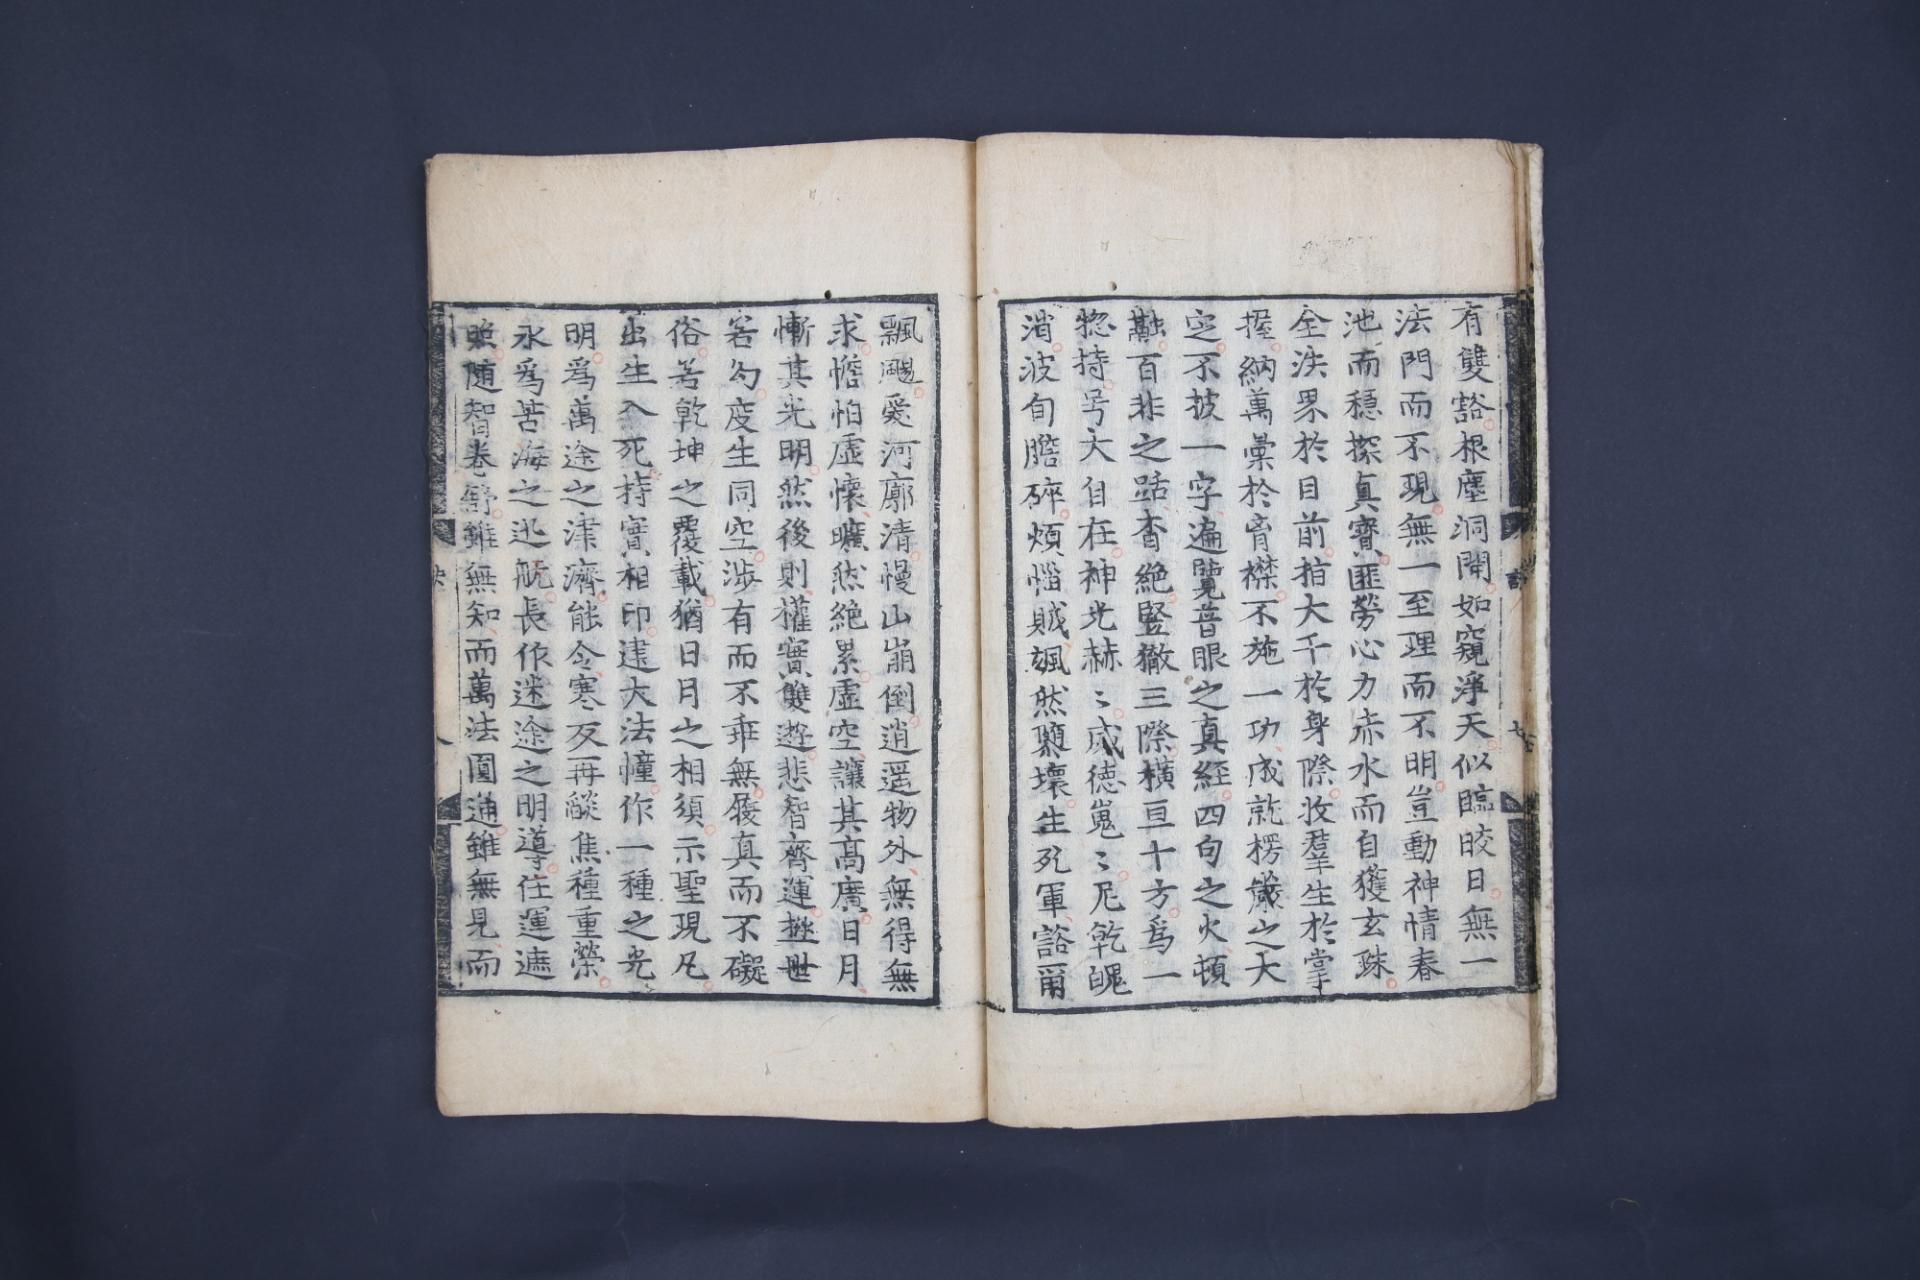 有雙豁根塵洞開如窺淨天似臨皎日無一
法門而不現無一至理而不明豈動神情春
池而穩探真寶匪勞心力赤水而自獲玄珠
全法界於目前拍大千於身際收羣生於掌
握納萬彙於胷襟不施一功成就楞嚴之大
定不披一字遍覽普眼之真経四句之火頓
百非之杳絶竪徹三際橫亘十方爲一
惣持号大自在神光赫〻威德嵬〻尼乾魄
消波旬膽碎煩惱賊颯然墮壞生死軍豁爾
飄颺愛河廓清慢山崩倒逍遥物外無得無
求憺怕虛懷曠然絶累虛空讓其高廣日月
慚其光明然後則權實雙遊悲智齊運拯世
若幻度生同空涉有而不乖無履真而不礙
俗若乾坤之覆載猶日月之相須示聖現凡
出生入死持實相印建大法幢作一種之光
明爲萬途之津濟能令寒灰再燄焦種重榮
永爲苦海之迅航長作迷途之明導任運遮
照隨智卷舒雖無知而萬法圓通雖無見而